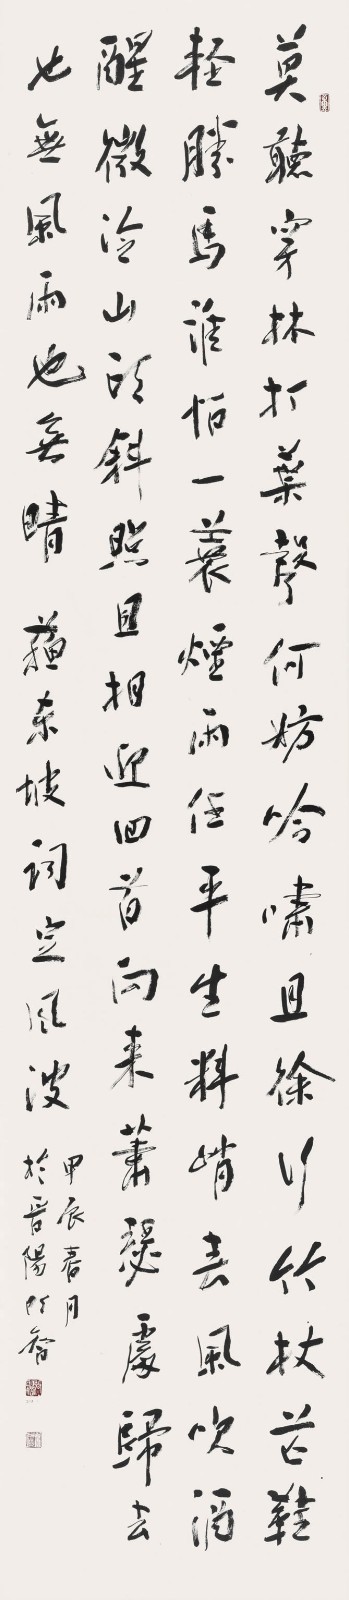 莫聽穿林打葉聲何妨吟嘯且徐行竹杖芒鞋
輕勝馬誰怕一蓑煙雨任平生料峭春風吹酒
醒微冷山頭斜照且相迎回首向來蕭瑟處歸去
也無風雨也無晴 蘇東坡詞定風波
甲辰春月
於晉陽